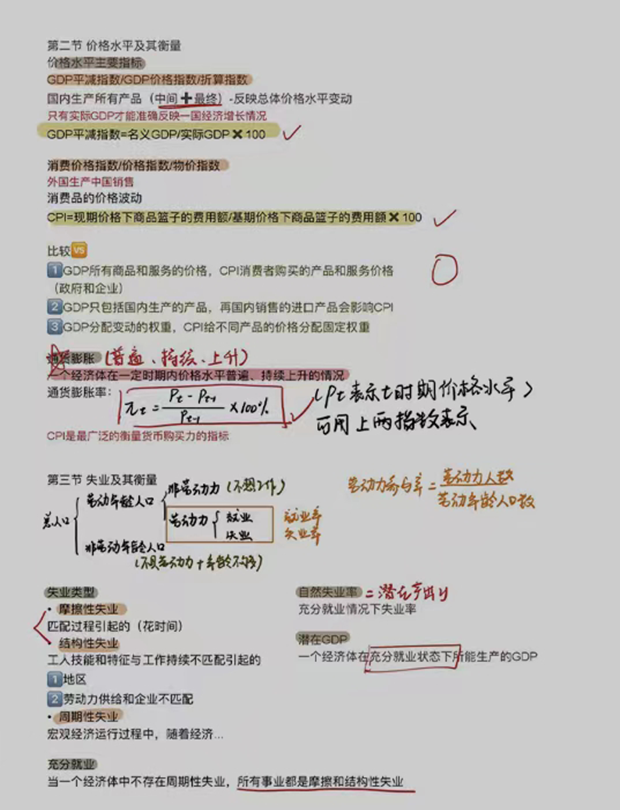 第二节 价格水平及其衡量
价格水平主要指标
GDP平减指数/GDP价格指数/折算指数
国内生产所有产品（中间➕最终）-反映总体价格水平变动
只有实际GDP才能准确反映一国经济增长情况
GDP平减指数=名义GDP/实际GDP✖100
消费价格指数/价格指数/物价指数
外国生产中国销售
消费品的价格波动
CPI=现期价格下商品篮子的费用额/基期价格下商品篮子的费用额✖100
比较🆚
1️⃣GDP所有商品和服务的价格，CPI消费者购买的产品和服务价格
（政府和企业）
2️⃣GDP只包括国内生产的产品，再国内销售的进口产品会影响CPI
3️⃣GDP分配变动的权重，CPI给不同产品的价格分配固定权重
通货膨胀（普遍、持续、上升）
一个经济体在一定时期内价格水平普遍、持续上升的情况
通货膨胀率：
πt = (Pt - Pt-1) / Pt-1 ×100%
（Pt表示t时期价格水平）
可用上两指数表示
CPI是最广泛的衡量货币购买力的指标
第三节 失业及其衡量
劳动力参与率 = 劳动力人数 / 劳动年龄人口数
总人口
劳动年龄人口
非劳动力（不想工作）
劳动力
就业
失业
就业率
失业率
非劳动年龄人口
失业类型
• 摩擦性失业
匹配过程引起的（花时间）
• 结构性失业
工人技能和特征与工作持续不匹配引起的
1️⃣地区
2️⃣劳动力供给和企业不匹配
• 周期性失业
宏观经济运行过程中，随着经济...
自然失业率 = 潜在产出y
充分就业情况下失业率
潜在GDP
一个经济体在充分就业状态下所能生产的GDP
充分就业
当一个经济体中不存在周期性失业，所有事业都是摩擦和结构性失业